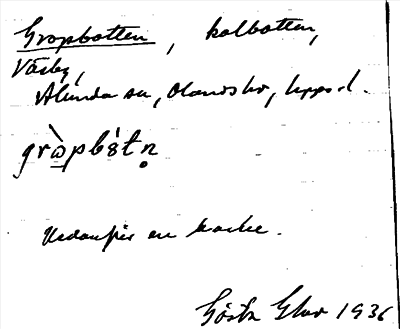 Gropbotten, kolbotten,
Väsby,
Alunda sn, Olands hd, Upps. l.
gròpbòt n̥
Nedanför en backe.
Gösta 1936